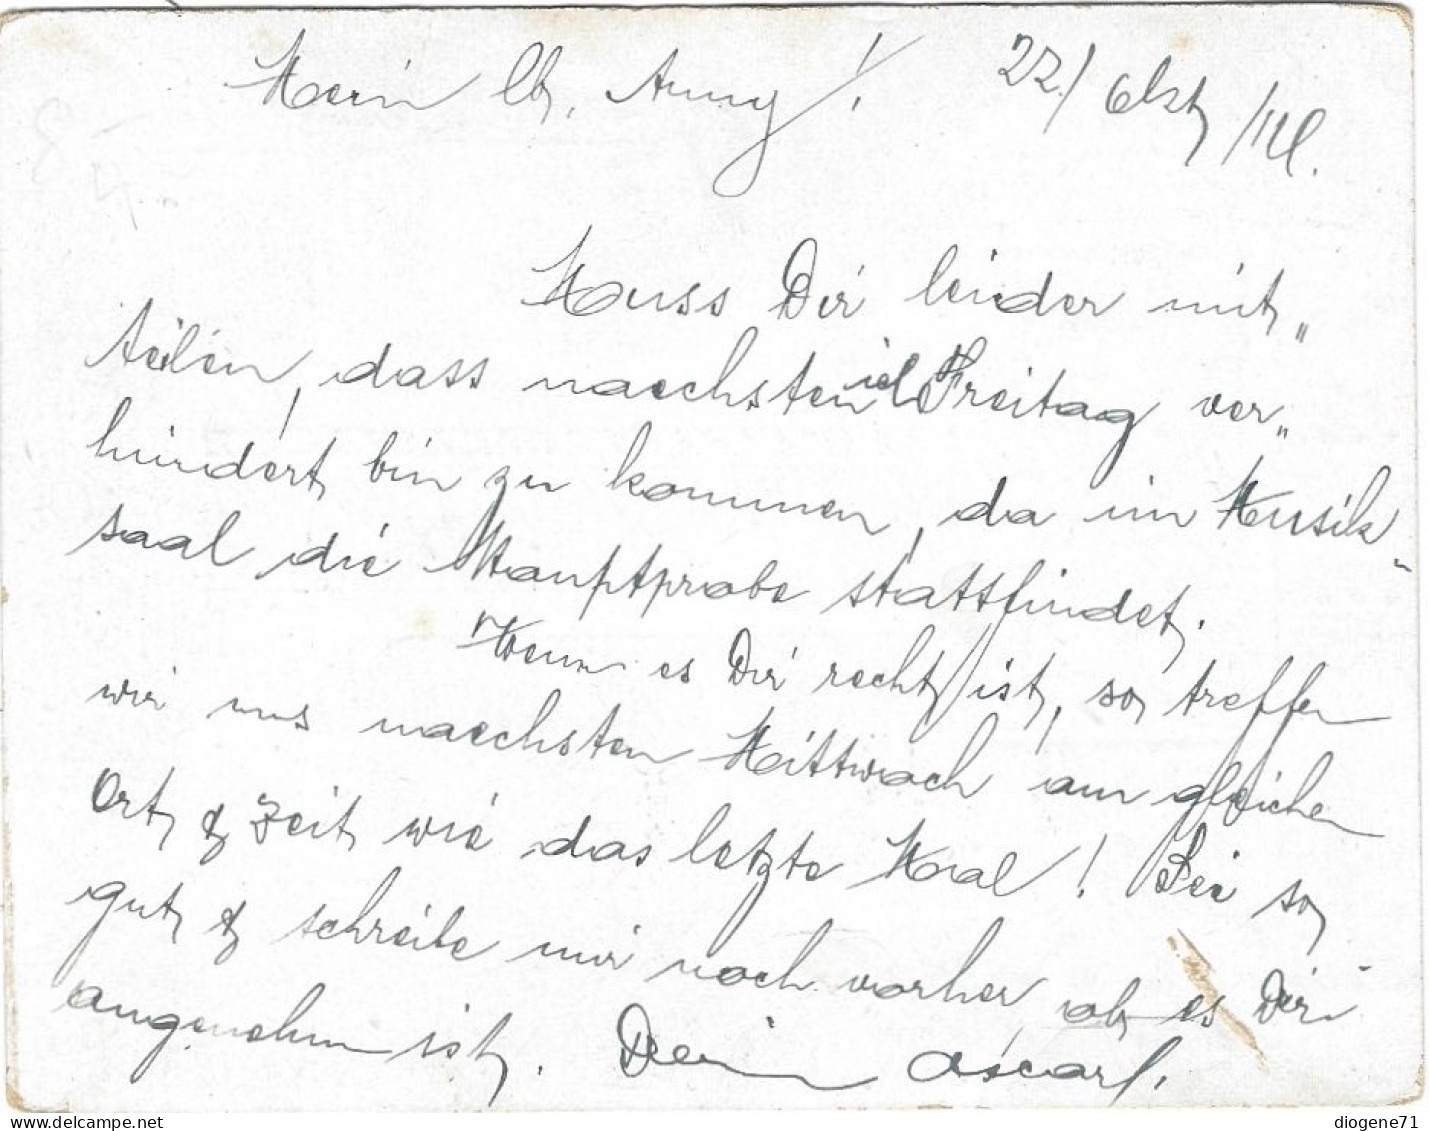 Mein lb. Anny! 22./Okt/14.
Muss Dir leider mit„
teilen, dass naechsten ich Freitag ver„
hindert bin zu kommen, da im Musik„
saal die Hauptprobe stattfindet.
Wenn es Dir recht ist, so treffen
wir uns naechsten Mittwoch am gleichen
Ort & Zeit wie das letzte Mal! Sei so
gut & schreibe mir noch vorher, ob es Dir
angenehm ist. Dein Oscarl.
diogene71